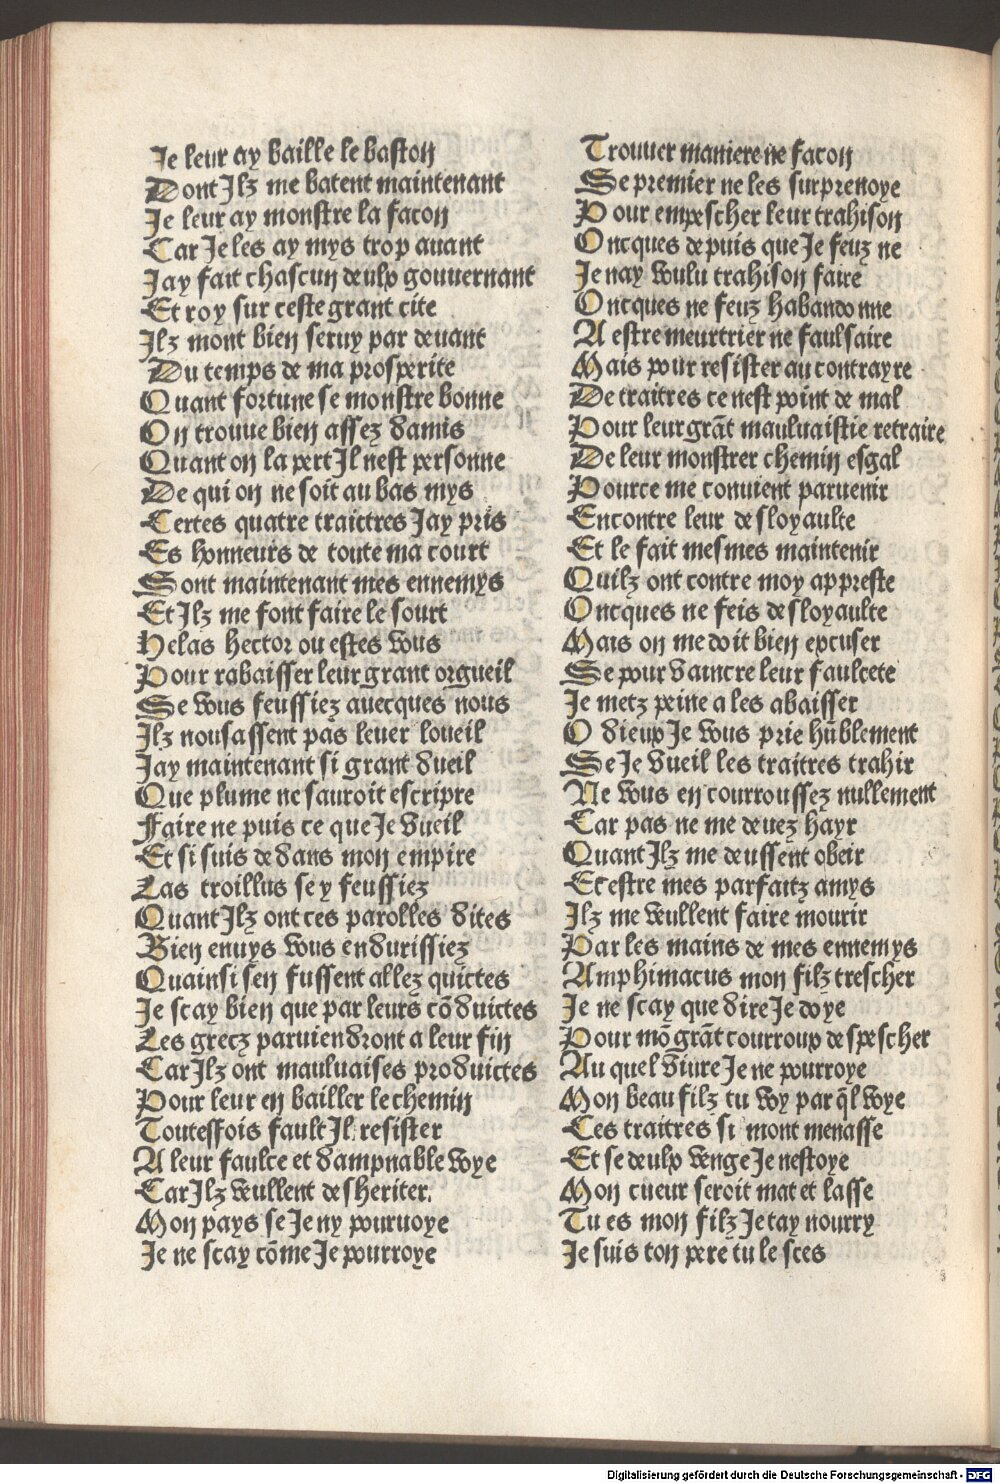 Je leur ay baille le baston
Dont Jlz me batent maintenant
Je leur ay monstre la facon
Car Je les ay mys trop auant
Jay fait chascun deulx gouuernant
Et roy sur ceste grant cite
Jlz mont bien seruy par deuant
Du temps de ma prosperite
Quant fortune se monstre bonne
On trouue bien assez damis
Quant on la pert Jl nest personne
De qui on ne soit au bas mys
Certes quatre traictres Jay pris
Es honneurs de toute ma court
Sont maintenant mes ennemys
Et Jlz me font faire le sourt
Helas hector ou estes vous
Pour rabaisser leur grant orgueil
Se vous feussiez auecques nous
Jlz nousassent pas leuer loueil
Jay maintenant si grant dueil
Que plume ne sauroit escripre
Faire ne puis ce que Je vueil
Et si suis dedans mon empire
Las troillus se y feussiez
Quant Jlz ont ces parolles dites
Bien enuys vous endurissiez
Quainsi sen fussent allez quictes
Je scay bien que par leurs cōduictes
Les grecz paruiendront a leur fin
Car Jlz ont mauluaises productes
Pour leur en bailler le chemin
Toutesfois fault Jl resister
A leur faulce et dampnable voye
Car Jlz veullent desheriter
Mon pays se Je ny pouruoye
Je ne scay cōme Je pourroye
Trouuer maniere ne facon
Se premier ne les surprenoye
Pour empescher leur trahison
Oncques depuis que Je feuz ne
Je nay voulu trahison faire
Oncques ne feuz habandonne
A estre meurtrier ne faulsaire
Mais pour resister au contrayre
De traitres ce nest point de mal
Pour leur grāt mauluaistie retraire
De leur monstrer chemin esgal
Pource me conuient paruenir
Encontre leur desloyaulte
Et le fait mesmes maintenir
Quilz ont contre moy appreste
Oncques ne feis desloyaulte
Mais on me doit bien excuser
Se pour vaincre leur faulcete
Je metz peine a les abaisser
O dieux Je vous prie hūblement
Se Je vueil les traitres trahir
Ne vous en courroussez nullement
Car pas ne me deuez hayr
Quant Jlz me deussent obeir
Et estre mes parfaitz amys
Jlz me veullent faire mourir
Par les mains de mes ennemys
Amphimacus mon filz trescher
Je ne scay que dire Je doye
Pour mō grāt courroux despescher
Au quel viure Je ne pourroye
Mon beau filz tu voy par q̄l voye
Ces traitres si mont menasse
Et se deulx venge Je nestoye
Mon cueur seroit mat et lasse
Tu es mon filz Je tay nourry
Je suis ton pere tu le sces
Digitalisierung gefördert durch die Deutsche Forschungsgemeinschaft - DFG